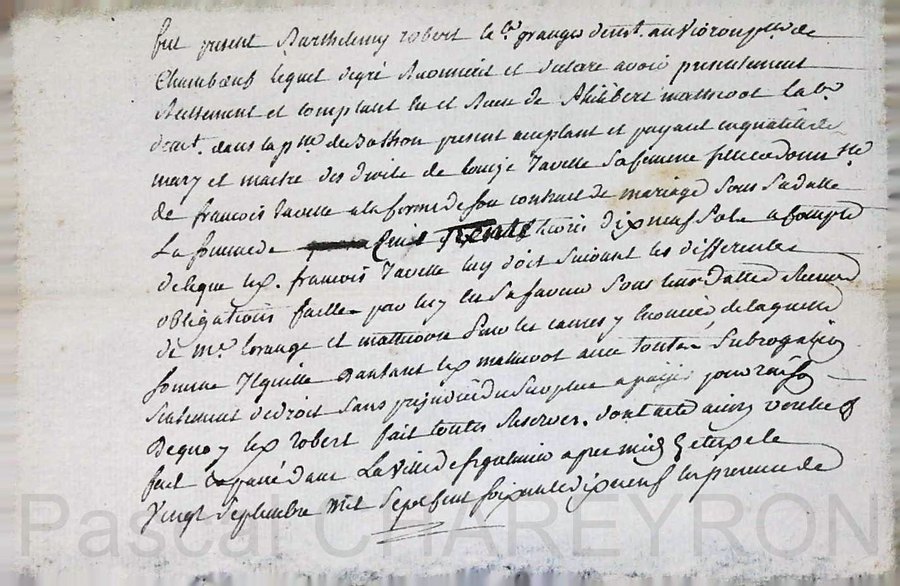 fut present Barthelemy robert le br granger demt. au Vioron psse de
Chambœuf lequel degré a reconneu et declare avoir presentement
reellement et comptant eu et receu de Philibert mathevot labr.
demt. dans la psse de present acceptant et payant en qualité de
mary et maitre des droits de Louise Favette sa femme fille et donnre
de francois favette a la forme de son contract de mariage sous sa datte
La somme de Cent trente livres dix neuf sols a compte
de ce que led. francois favette luy doit suivant les differentes
obligations faittes par luy en sa faveur sous leurs dattes receues
de me. et sur les causes y enoncés de laquelle
somme Il quitte dautant led mathevot avec toutte Subrogation
seulement de droit sans prejudice du surplus a payer pour raison
Dequoy led robert fait touttes reserves. dont acte ainsy voulu
fait et passé dans La Ville de apres midy le
Vingt septembre Mil sept cent soixante dix neuf en presence de
Pascal CHAREYRON